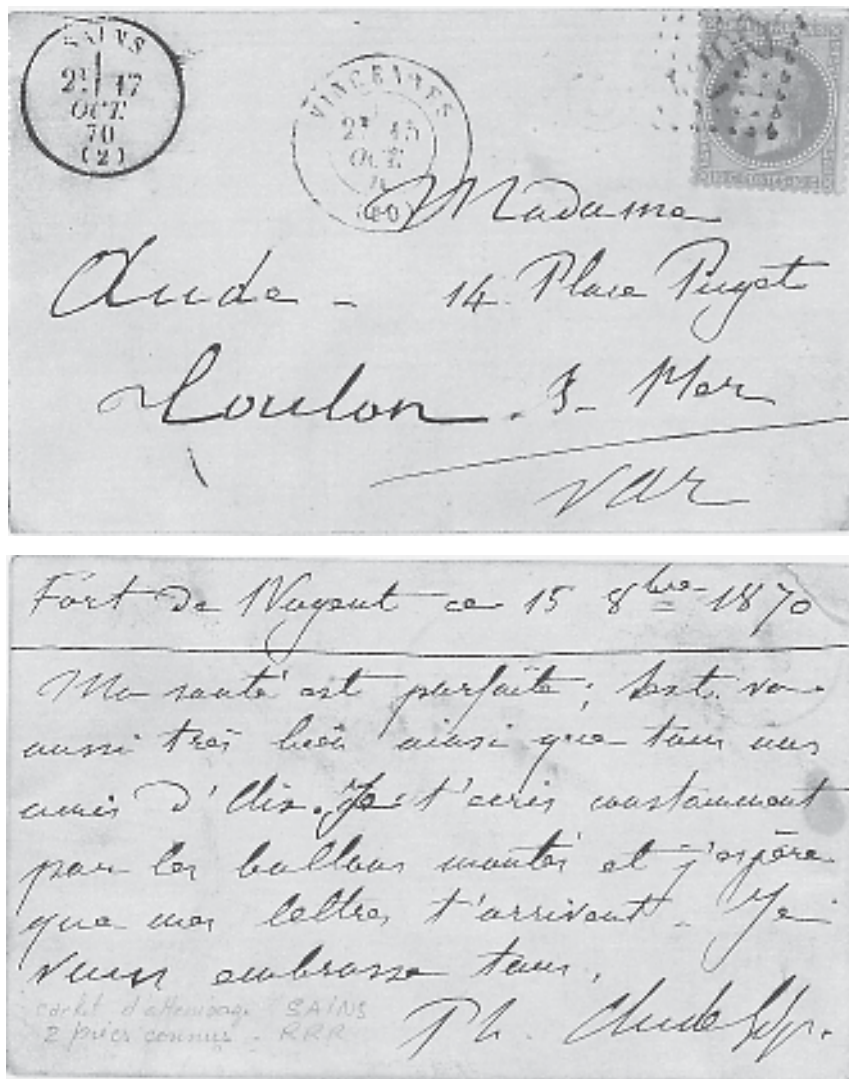 SAINS
2E 17
OCT.
70
(2)
VINCENNES
2E 15
OCT.
70
(60)
Madame
Aude - 14 Place Puget
Toulon. s- Mer
Var
Fort de Nogent ce 15 8bre 1870
Ma santé est parfaite; va
aussi très bien ainsi que tous nos
amis d'Aix. Je t'écris constamment
par les ballons montés et j'espère
que mes lettres t'arrivent. Je
vous embrasse tous.
Ph. Aude
cachet d'atterrissage SAINS
2 pièces connues - RRR